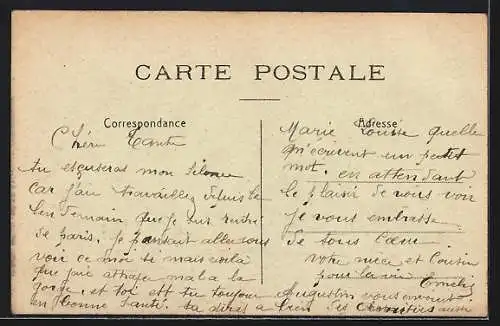 CARTE POSTALE
Correspondance
Chère Tante
tu escuseras mon silence
car j'ai travaillez depuis le
len demain que je suis rentré
de paris. je pensait aller vous
voir ce moi si mais voila
que j'aie attrape mal a la
gorge. et toi est tu toujour
en bonne santé. tu diras a
Adresse
Marie Louise quelle
m'écrivent un petit
mot. en attendant
le plaisir de vous voir
je vous embrasse
de tous Cœur
votre nièce et Cousin
pour la vie Emelie
Augustin vous envoient
bien ses amitiés aussi